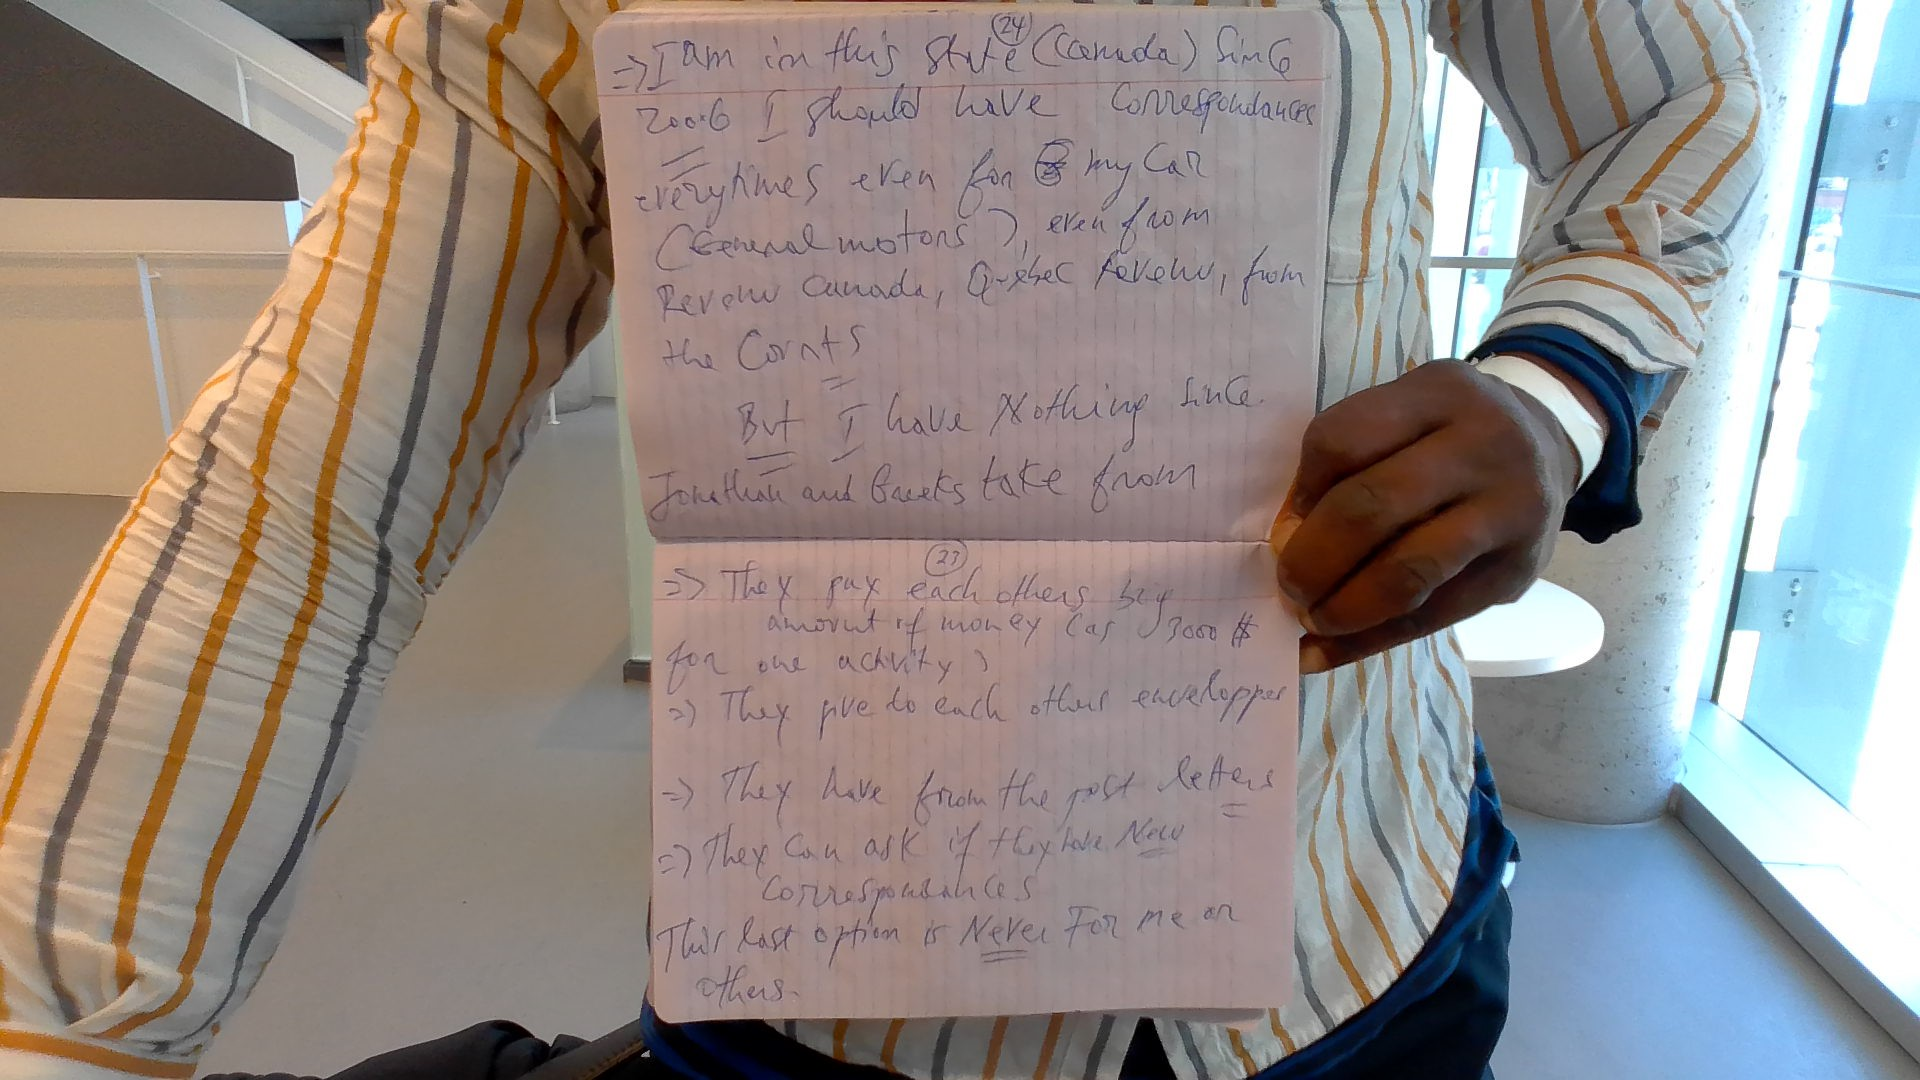 24
=> I am in this state (Canada) Since
2006 I should have Correspondances
everytimes even for my Car
(General motors), even from
Revenu Canada, Québec Revenu, from
the Courts
But I have Nothing Since
Jonathan and Greeks take from
23
=> They pay each others big
amount of money (as 3000 $
for one activity)
=> They give to each others enveloppes
=> They have from the post letters
=> They can ask if they have New
Correspondances
This last option is Never For me or
others.